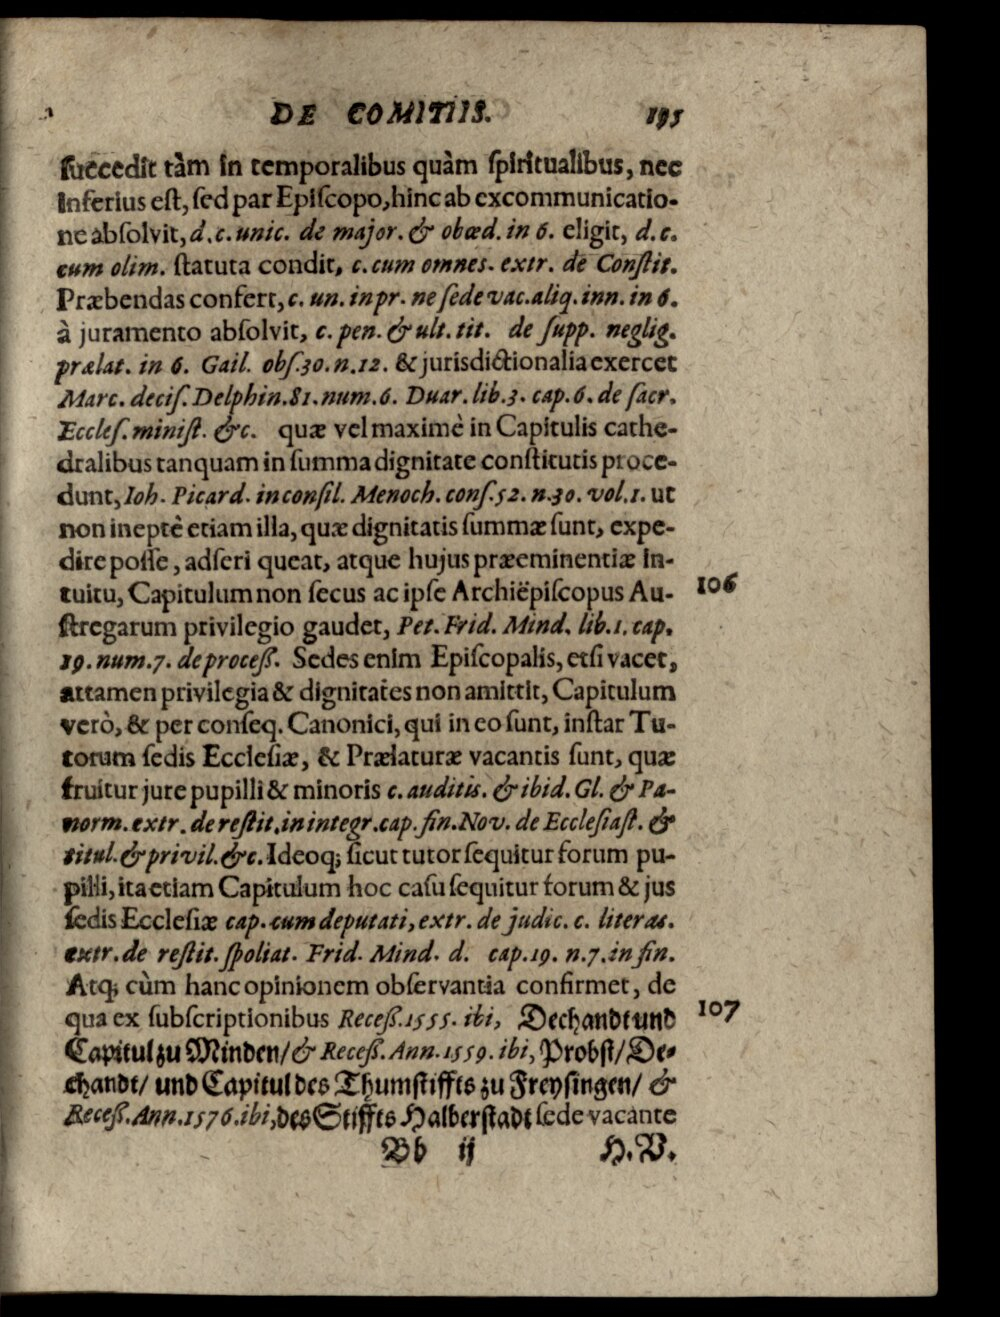 DE COMITIIS. 195
ſuccedit tàm in temporalibus quàm ſpiritualibus, nec
inferius eſt, ſed par Epiſcopo, hinc ab excommunicatio-
ne abſolvit, d. c. unic. de major. & obœd. in 6. eligit, d. c.
cum olim. ſtatuta condit, c. cum omnes. extr. de Conſtit.
Præbendas confert, c. un. in pr. ne ſede vac. aliq. inn. in 6.
à juramento abſolvit, c. pen. & ult. tit. de ſupp. neglig.
prælat. in 6. Gail. obſ. 30. n. 12. & jurisdictionalia exercet
Marc. deciſ. Delphin. 81. num. 6. Duar. lib. 3. cap. 6. de ſacr.
Eccleſ. miniſt. &c. quæ vel maximè in Capitulis cathe-
dralibus tanquam in ſumma dignitate conſtitutis proce-
dunt, Ioh. Picard. in conſil. Menoch. conſ. 52. n. 30. vol. 1. ut
non ineptè etiam illa, quæ dignitatis ſummæ ſunt, expe-
dire poſſe, adſeri queat, atque hujus præeminentiæ in-
tuitu, Capitulum non ſecus ac ipſe Archiëpiſcopus Au- 106
ſtregarum privilegio gaudet, Pet. Frid. Mind. lib. 1. cap.
19. num. 7. de proceſſ. Sedes enim Epiſcopalis, etſi vacet,
attamen privilegia & dignitates non amittit, Capitulum
verò, & per conſeq. Canonici, qui in eo ſunt, inſtar Tu-
torum ſedis Eccleſiæ, & Prælaturæ vacantis ſunt, quæ
fruitur jure pupilli & minoris c. auditis. & ibid. Gl. & Pa-
norm. extr. de reſtit. in integr. cap. fin. Nov. de Eccleſiaſt. &
titul. & privil. &c. Ideoq; ſicut tutor ſequitur forum pu-
pilli, ita etiam Capitulum hoc caſu ſequitur forum & jus
ſedis Eccleſiæ cap. cum deputati, extr. de judic. c. literas.
extr. de reſtit. ſpoliat. Frid. Mind. d. cap. 19. n. 7. in fin.
Atq; cùm hanc opinionem obſervantia confirmet, de
qua ex ſubſcriptionibus Receſſ. 1555. ibi, Dechandt und 107
Capitul zu Minden/ & Receſſ. Ann. 1559. ibi, Probſt/ De-
chandt/ und Capitul des Thumſtiffts zu Freyſingen/ &
Receſſ. Ann. 1576. ibi, des Stiffts Halberſtadt ſede vacante
Bb ij H. V.